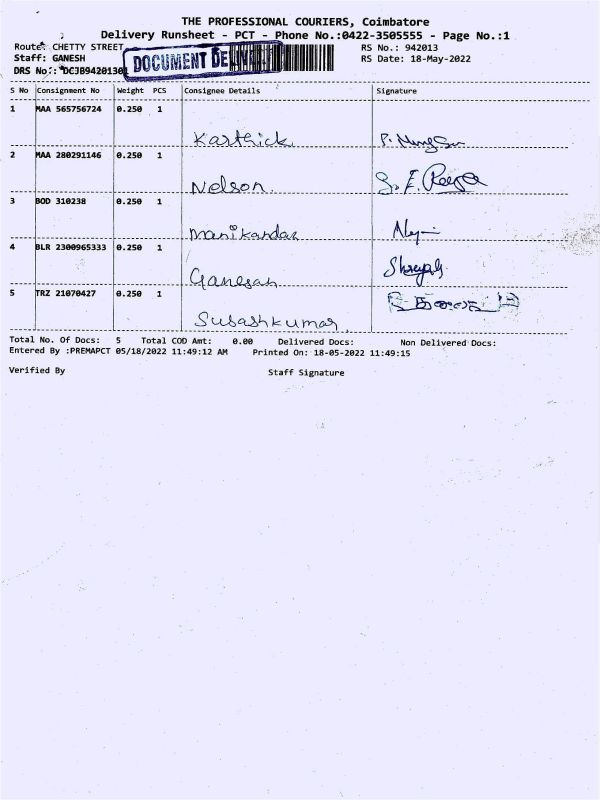 THE PROFESSIONAL COURIERS, Coimbatore
Delivery Runsheet - PCT - Phone No.:0422-3505555 - Page No.:1
Route: CHETTY STREET RS No.: 942013
Staff: GANESH RS Date: 18-May-2022
DOCUMENT DELIVERED
DRS No: DCJB94201301
S No Consignment No Weight PCS Consignee Details Signature
1 MAA 565756724 0.250 1
Karthick
2 MAA 280291146 0.250 1
Nelson
3 BOD 310238 0.250 1
Manikandan
4 BLR 2300965333 0.250 1
Ganesan
5 TRZ 21070427 0.250 1
Subashkumar
Total No. Of Docs: 5 Total COD Amt: 0.00 Delivered Docs: Non Delivered Docs:
Entered By :PREMAPCT 05/18/2022 11:49:12 AM Printed On: 18-05-2022 11:49:15
Verified By Staff Signature